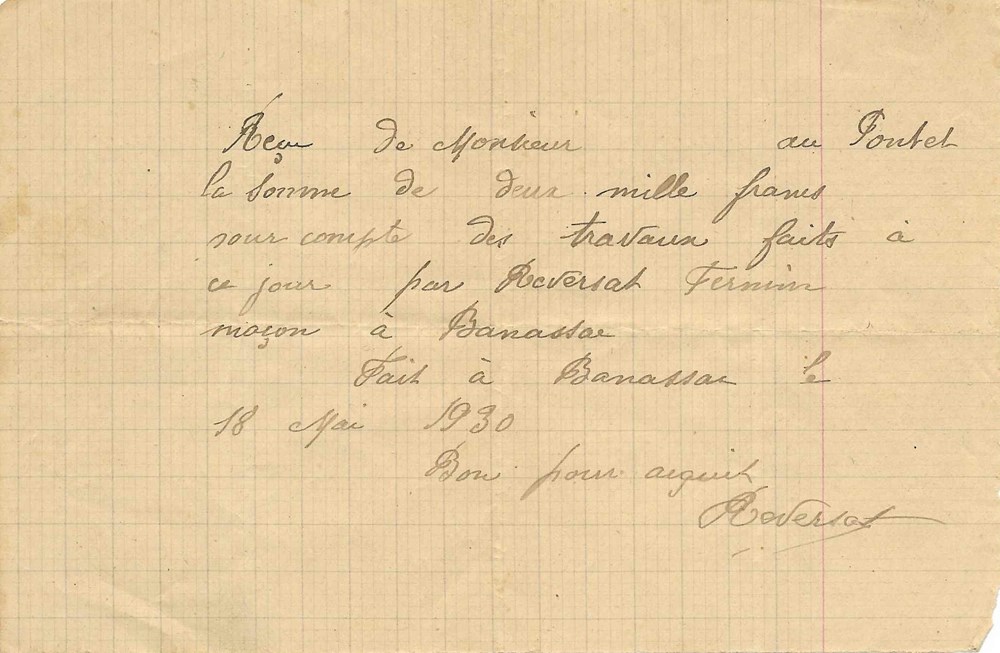 Reçu de Monsieur au Pontet
la somme de deux mille francs
pour compte des travaux faits à
ce jour par Reversat Fermin
maçon à Banassac
Fait à Banassac le
18 Mai 1930
Bon pour acquit
Reversat